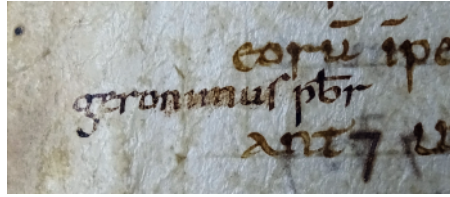 eorū īpe
geronimus pb̄r
ant 7 u